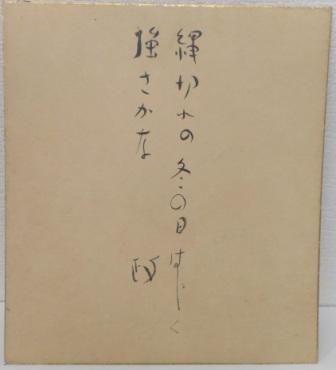 縄切れの冬の日はじく
強さかな